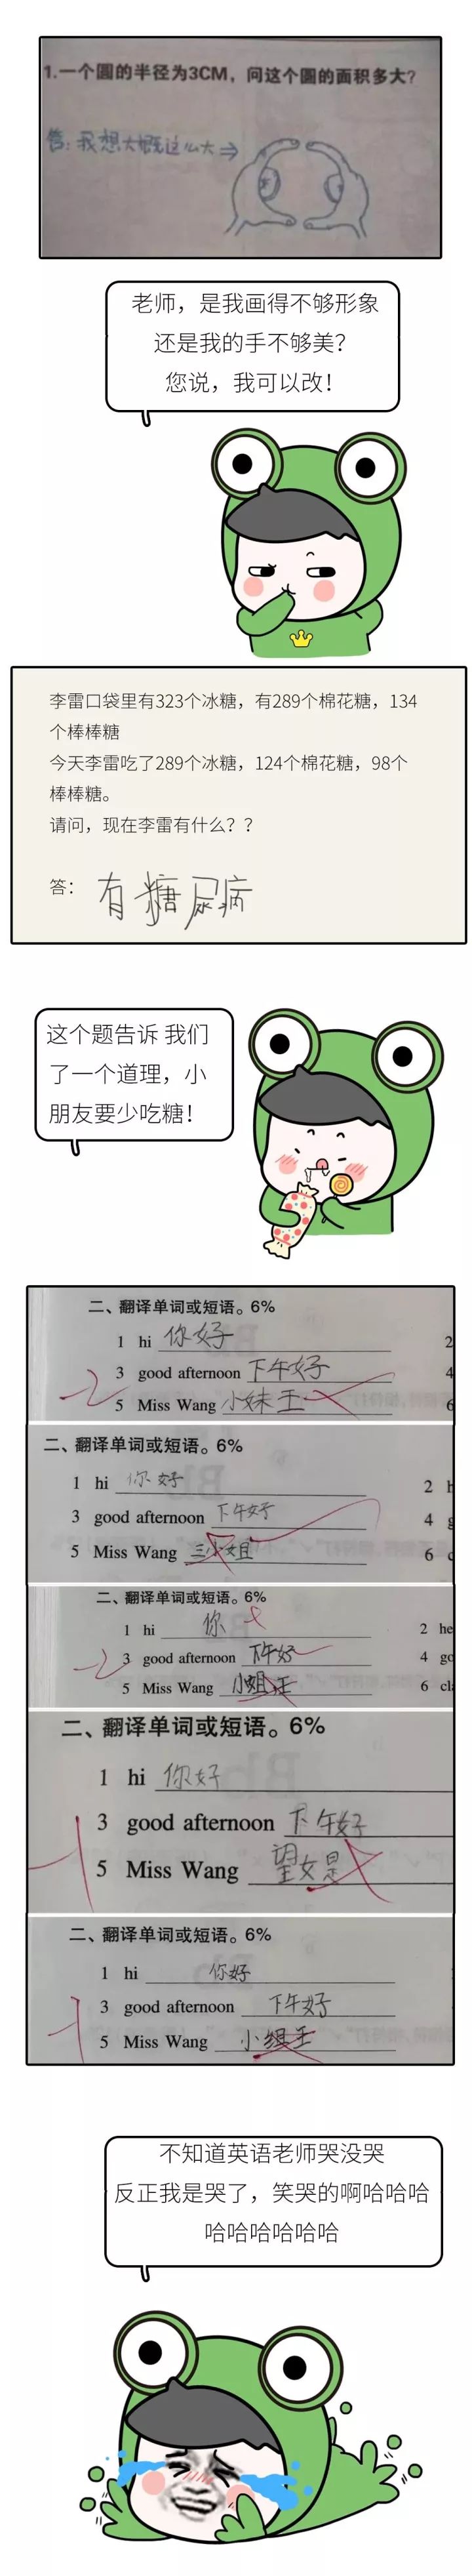 1.一个圆的半径为3CM，问这个圆的面积多大?
答：我想大概这么大→
老师，是我画得不够形象
还是我的手不够美?
您说，我可以改!
李雷口袋里有323个冰糖，有289个棉花糖，134
个棒棒糖
今天李雷吃了289个冰糖，124个棉花糖，98个
棒棒糖。
请问，现在李雷有什么？？
答： 有糖尿病
这个题告诉 我们
了一个道理，小
朋友要少吃糖!
二、翻译单词或短语。6%
1 hi 你好 2
3 good afternoon 下午好 4
-2
5 Miss Wang 小妹王 6
二、翻译单词或短语。6%
1 hi 你好 2 h
3 good afternoon 下午好 4 g
5 Miss Wang 三小姐 6 c
二、翻译单词或短语。6%
1 hi 你 2 he
-2 3 good afternoon 下午好 4 go
5 Miss Wang 小姐王 6 cl
二、翻译单词或短语。6%
1 hi 你好
3 good afternoon 下午好
-1
5 Miss Wang 望女是
二、翻译单词或短语。6%
1 hi 你好
-1 3 good afternoon 下午好
5 Miss Wang 小组王
不知道英语老师哭没哭
反正我是哭了，笑哭的啊哈哈哈
哈哈哈哈哈哈